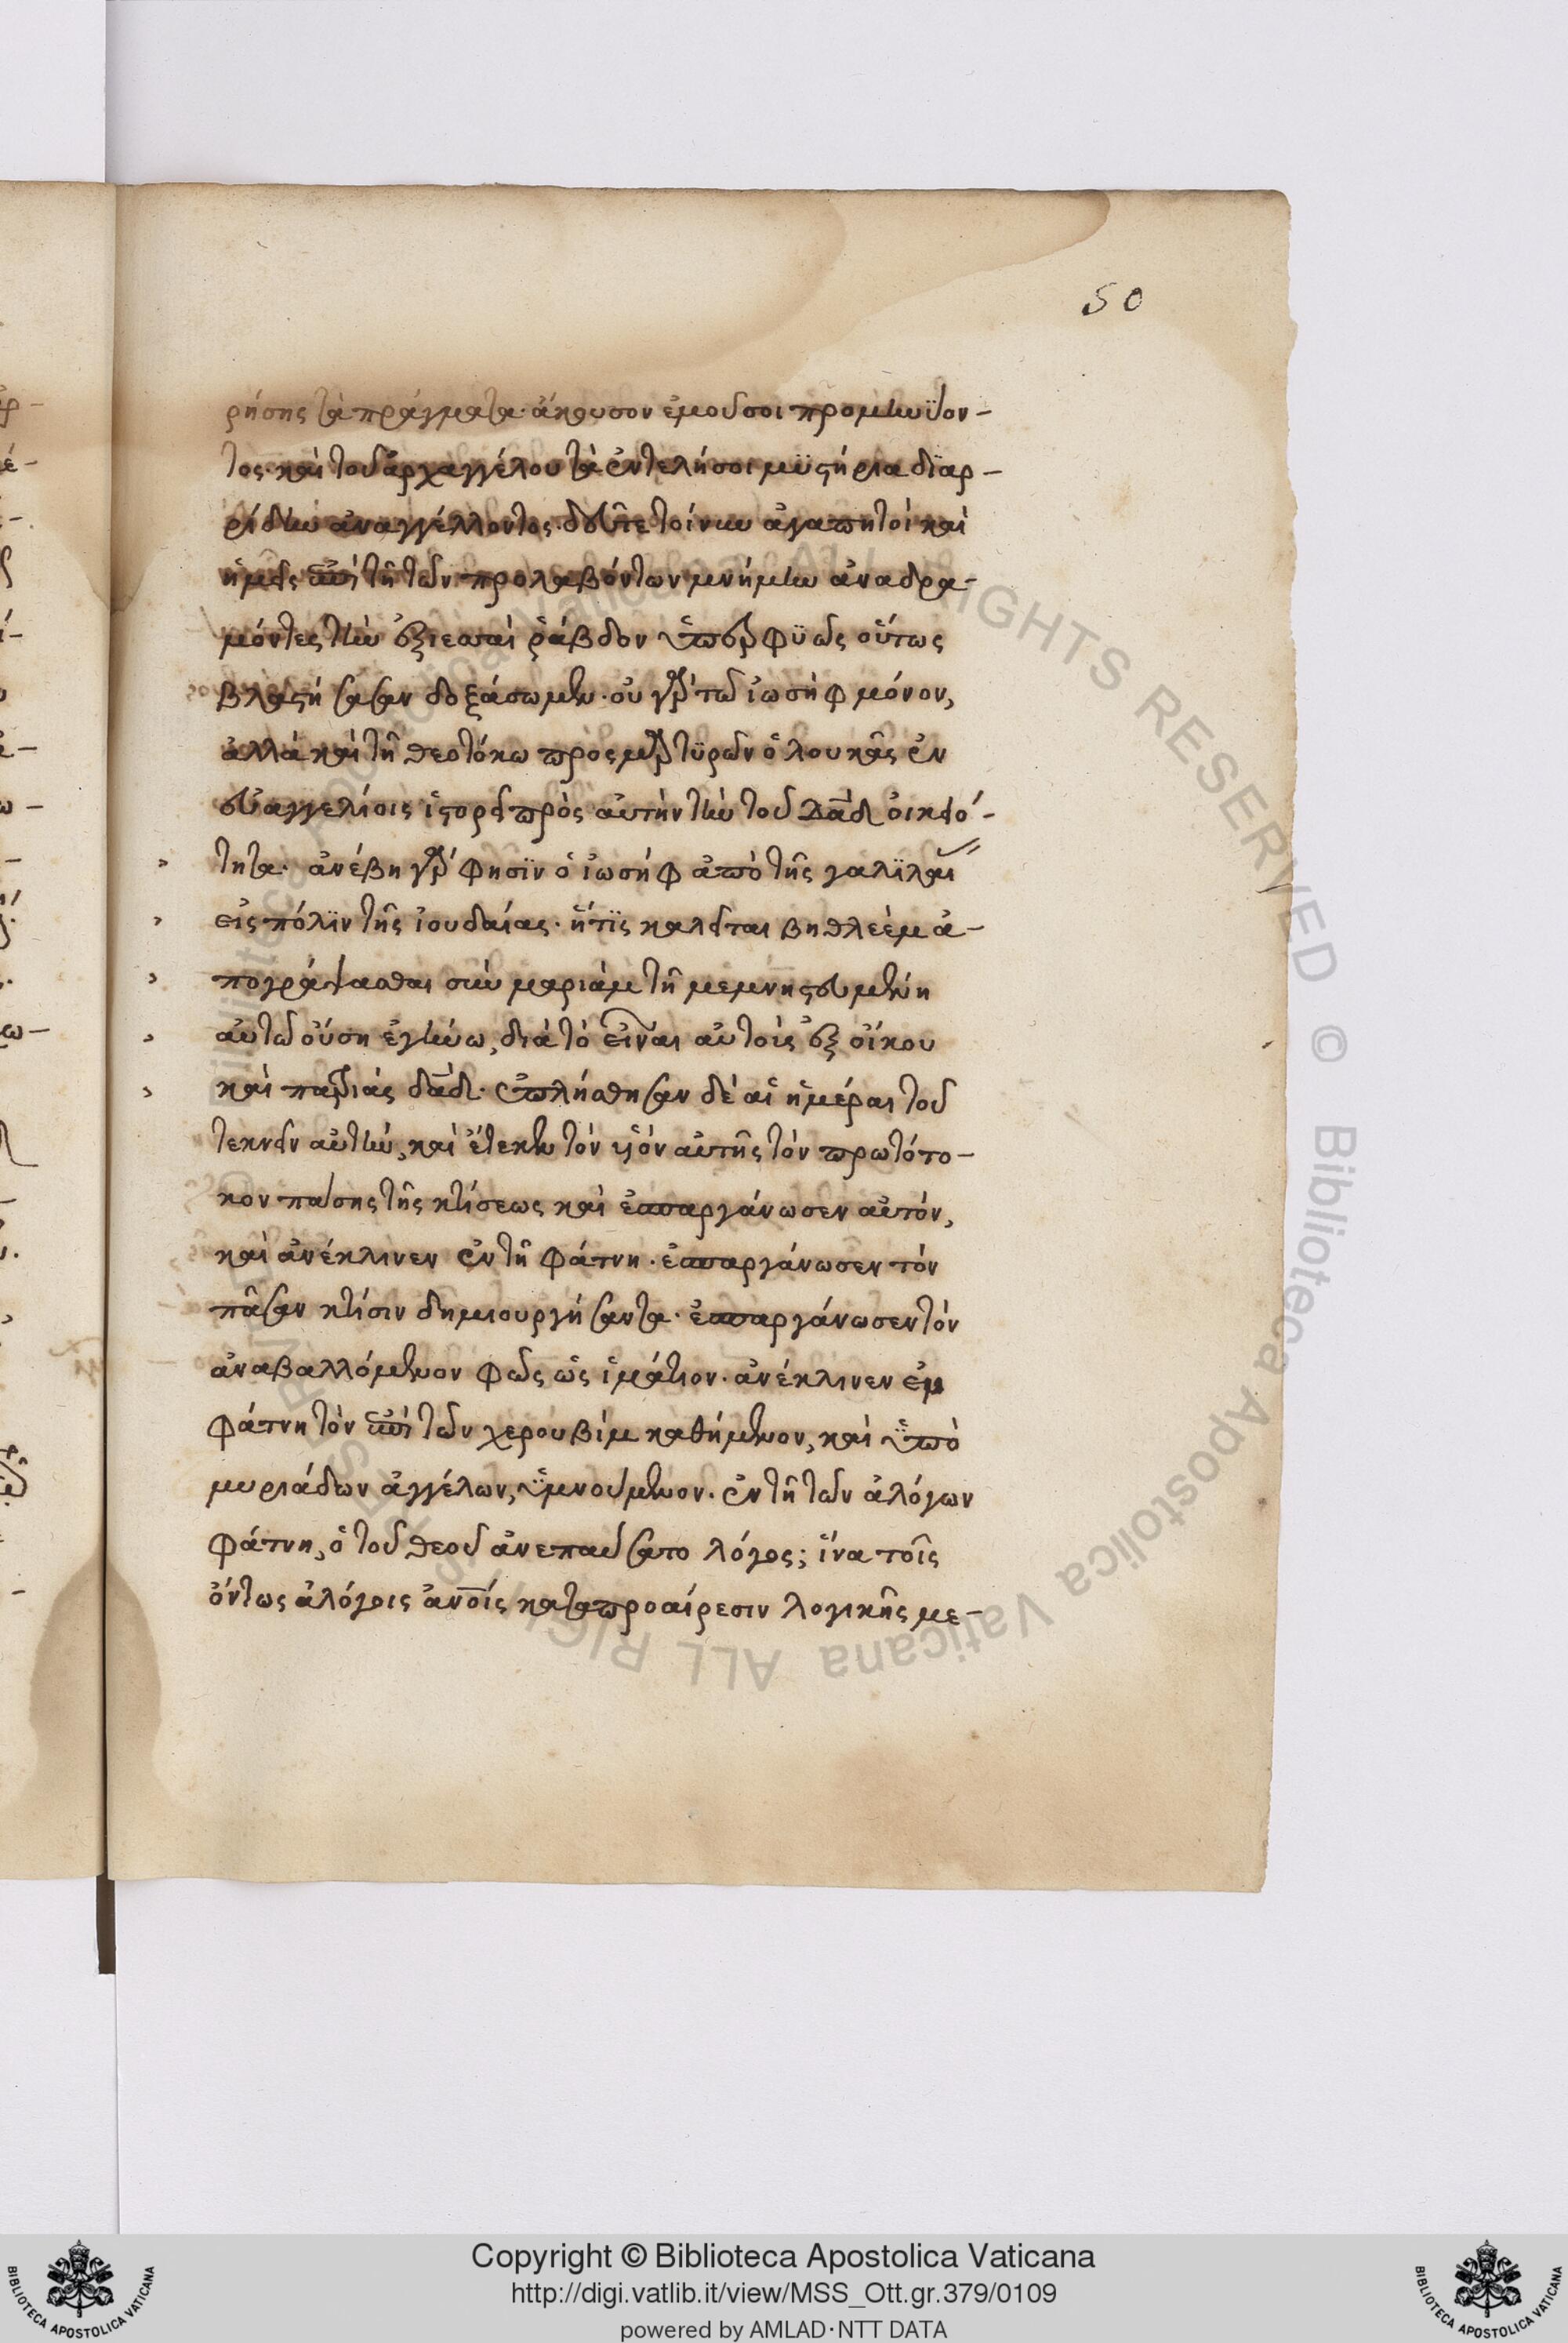 50
ρήσης τὰ πράγματα· ἄκουσον ἐμοῦ σοι προμηνύον-
τος· καὶ τοῦ ἀρχαγγέλου τὰ ἐν τέλη σοι μϋστήρια διαρ-
ρίδην ἀναγγέλλοντος· δεῦτε τοίνυν ἀγαπητοὶ καὶ
ἡμεῖς ἐπὶ τῇ τῶν προλαβόντων μνήμην ἀναδρα-
μόντες τὴν ἐξ ἰεσσαὶ ῥάβδον ὑπερφϋῶς οὕτως
βλαστήσασαν δοξάσωμεν· οὐ γὰρ τῶ ἰωσὴφ μόνον,
ἀλλὰ καὶ τῇ θεοτόκω προσμαρτϋρῶν ὁ λουκᾶς ἐν
εὐαγγελίοις ἱστορεῖ πρὸς αὐτὴν τὴν τοῦ δαδ οἰκειό-
τητα· ἀνέβη γάρ φησϊν ὁ ἰωσὴφ ἀπὸ τῆς γαλϊλαίας
εἰς πόλϊν τῆς ἰουδαίας· ἥτϊς καλεῖται βηθλεὲμ ἀ-
πογράψασθαι σὺν μαριὰμ τῇ μεμνηστευμένη
αὐτῶ οὔση ἐγκύω, διὰ τὸ εἶναι αὐτοὺς ἐξ οἴκου
καὶ πατριᾶς δαδ· ἐπλήσθησαν δὲ αἱ ἡμέραι τοῦ
τεκνεῖν αὐτὴν, καὶ ἔτεκεν τὸν υἱὸν αὐτῆς τὸν πρωτότο-
κον πάσης τῆς κτίσεως καὶ ἐσπαργάνωσεν αὐτόν,
καὶ ἀνέκλινεν ἐν τῇ φάτνη· ἐσπαργάνωσεν τὸν
πᾶσαν κτίσιν δημιουργήσαντα· ἐσπαργάνωσεν τὸν
ἀναβαλλόμενον φῶς ὡς ἱμάτιον· ἀνέκλινεν ἐν
φάτνη τὸν ἐπὶ τῶν χερουβὶμ καθήμενον, καὶ ὑπὸ
μυριάδων ἀγγέλων, ὑμνούμενον· ἐν τῇ τῶν ἀλόγων
φάτνη, ὁ τοῦ θεοῦ ἀνεπαύσατο λόγος; ἵνα τοῖς
ὄντως ἀλόγοις ἀνοις κατὰ προαίρεσιν λογικῆς με-
Copyright © Biblioteca Apostolica Vaticana
http://digi.vatlib.it/view/MSS_Ott.gr.379/0109
powered by AMLAD·NTT DATA